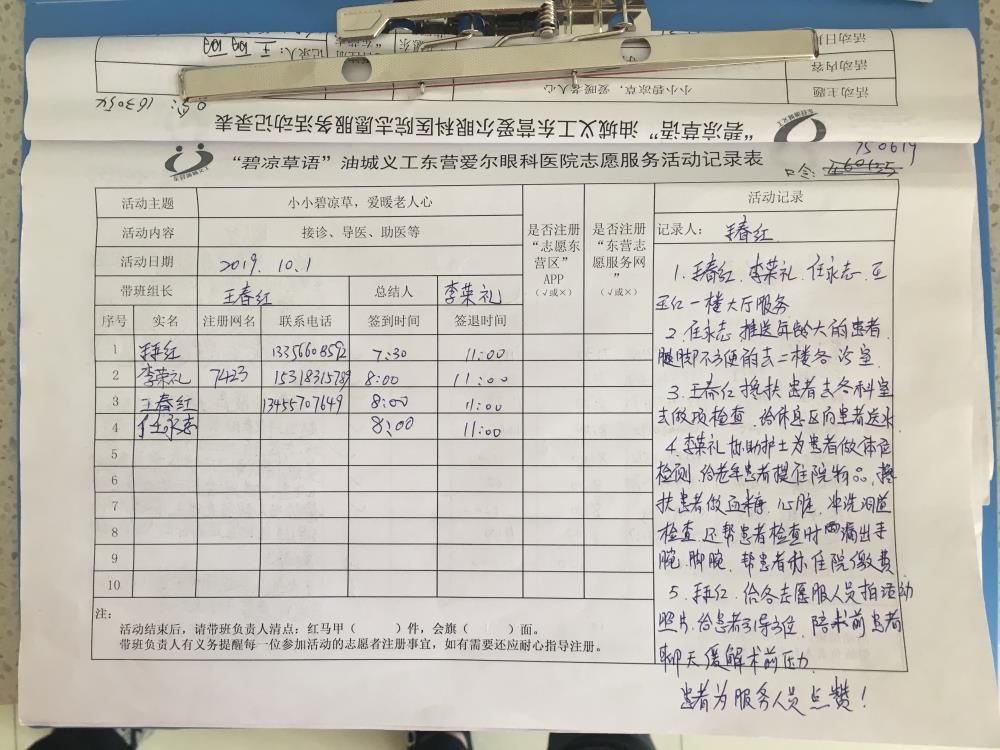 “碧凉草语”油城义工东营爱尔眼科医院志愿服务活动记录表
750619
口令:
活动主题 小小碧凉草，爱暖老人心
活动内容 接诊、导医、助医等
活动日期 2019. 10.1
带班组长 王春红 总结人 李荣礼
是否注册“志愿东营区”APP（√或×）
是否注册“东营志愿服务网”（√或×）
序号 实名 注册网名 联系电话 签到时间 签退时间
1 13356608592 7:30 11:00
2 李荣礼 7423 15318315789 8:00 11:00
3 王春红 13455707649 8:00 11:00
4 任永志 8:00 11:00
5
6
7
8
9
10
注：
活动结束后，请带班负责人清点：红马甲（ ）件，会旗（ ）面。
带班负责人有义务提醒每一位参加活动的志愿者注册事宜，如有需要还应耐心指导注册。
活动记录
记录人： 王春红
1. 王春红. 李荣礼. 任永志. 王
红一楼大厅服务
2. 任永志 推送年龄大的患者.
腿脚不方便的去二楼各诊室
3. 王春红 搀扶患者去各科室
去做项检查. 给休息区的患者送水
4. 李荣礼 协助护士为患者做体位
检测. 给老年患者提住院物品. 搀
扶患者做血糖. 心脏. 冲洗泪道
检查. 还帮患者检查时露出手
腕. 脚腕. 帮患者办住院缴费
5. 红. 给各志愿服人员拍活动
照片. 给患者引导方位. 陪术前患者
聊天缓解术前压力.
患者为服务人员点赞！
“碧凉草语”油城义工东营爱尔眼科医院志愿服务活动记录表
活动主题 小小碧凉草，爱暖老人心
活动内容
活动日期